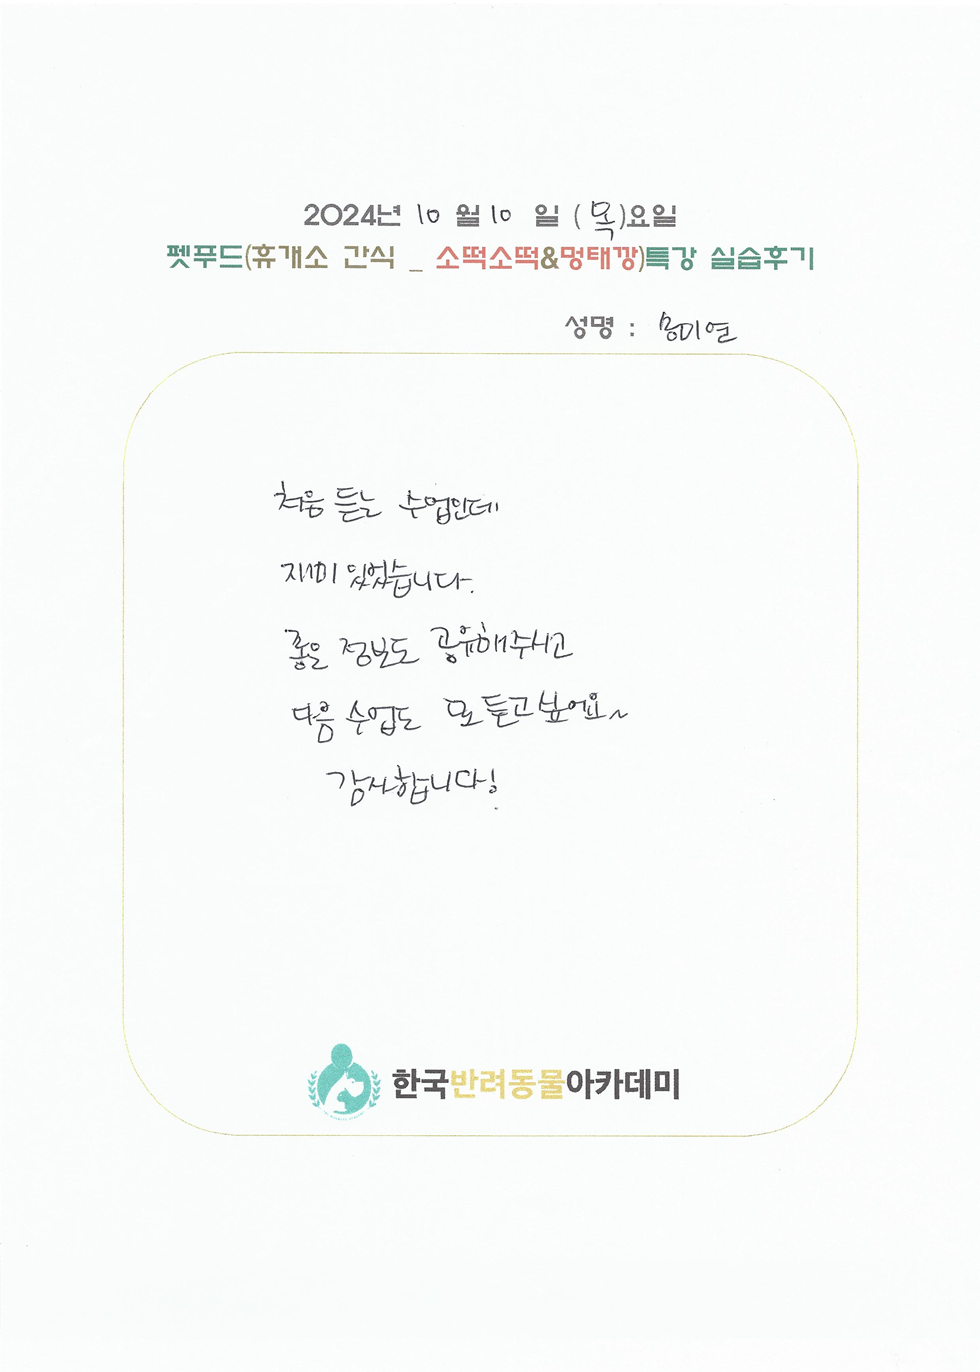 2024년 10 월 10 일 (목)요일
펫푸드(휴개소 간식 _ 소떡소떡&멍태깡)특강 실습후기
성명 : 송미연
처음 듣는 수업인데
재미 있었습니다.
좋은 정보도 공유해주시고
다음 수업도 또 듣고싶어요~
감사합니다!
한국반려동물아카데미